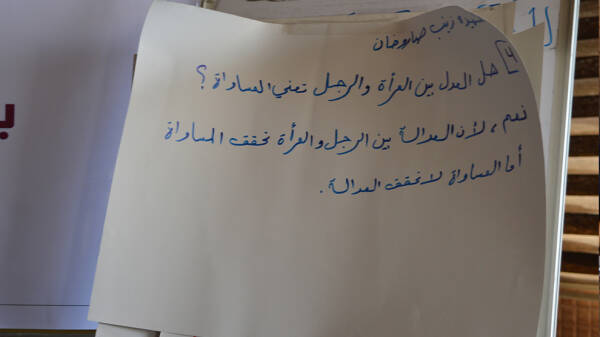 زينب
4 هل العدل بين المرأة والرجل تعني المساواة ؟
نعم ، لأن العدالة بين الرجل والمرأة تحقق المساواة
أما المساواة لا تحقق العدالة .
1